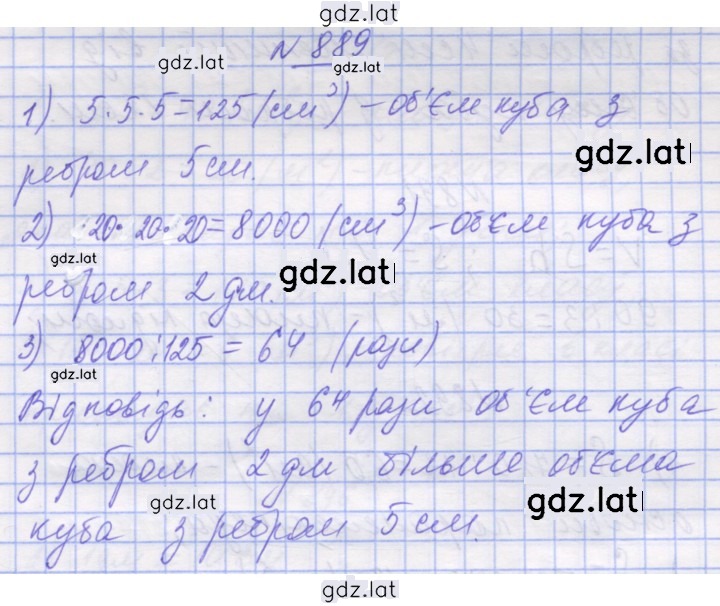 gdz.lat
№ 889
gdz.lat
gdz.lat
1) 5·5·5=125 (см³) – об'єм куба з
gdz.lat
ребром 5 см.
2) 20·20·20=8000 (см³) – обєм куба з
gdz.lat
gdz.lat
ребром 2 дм.
3) 8000:125 = 64 (рази)
gdz.lat
Відповідь: у 64 рази об'єм куба
з ребром 2 дм більше обєма
gdz.lat
gdz.lat
куба з ребром 5 см.
gdz.lat